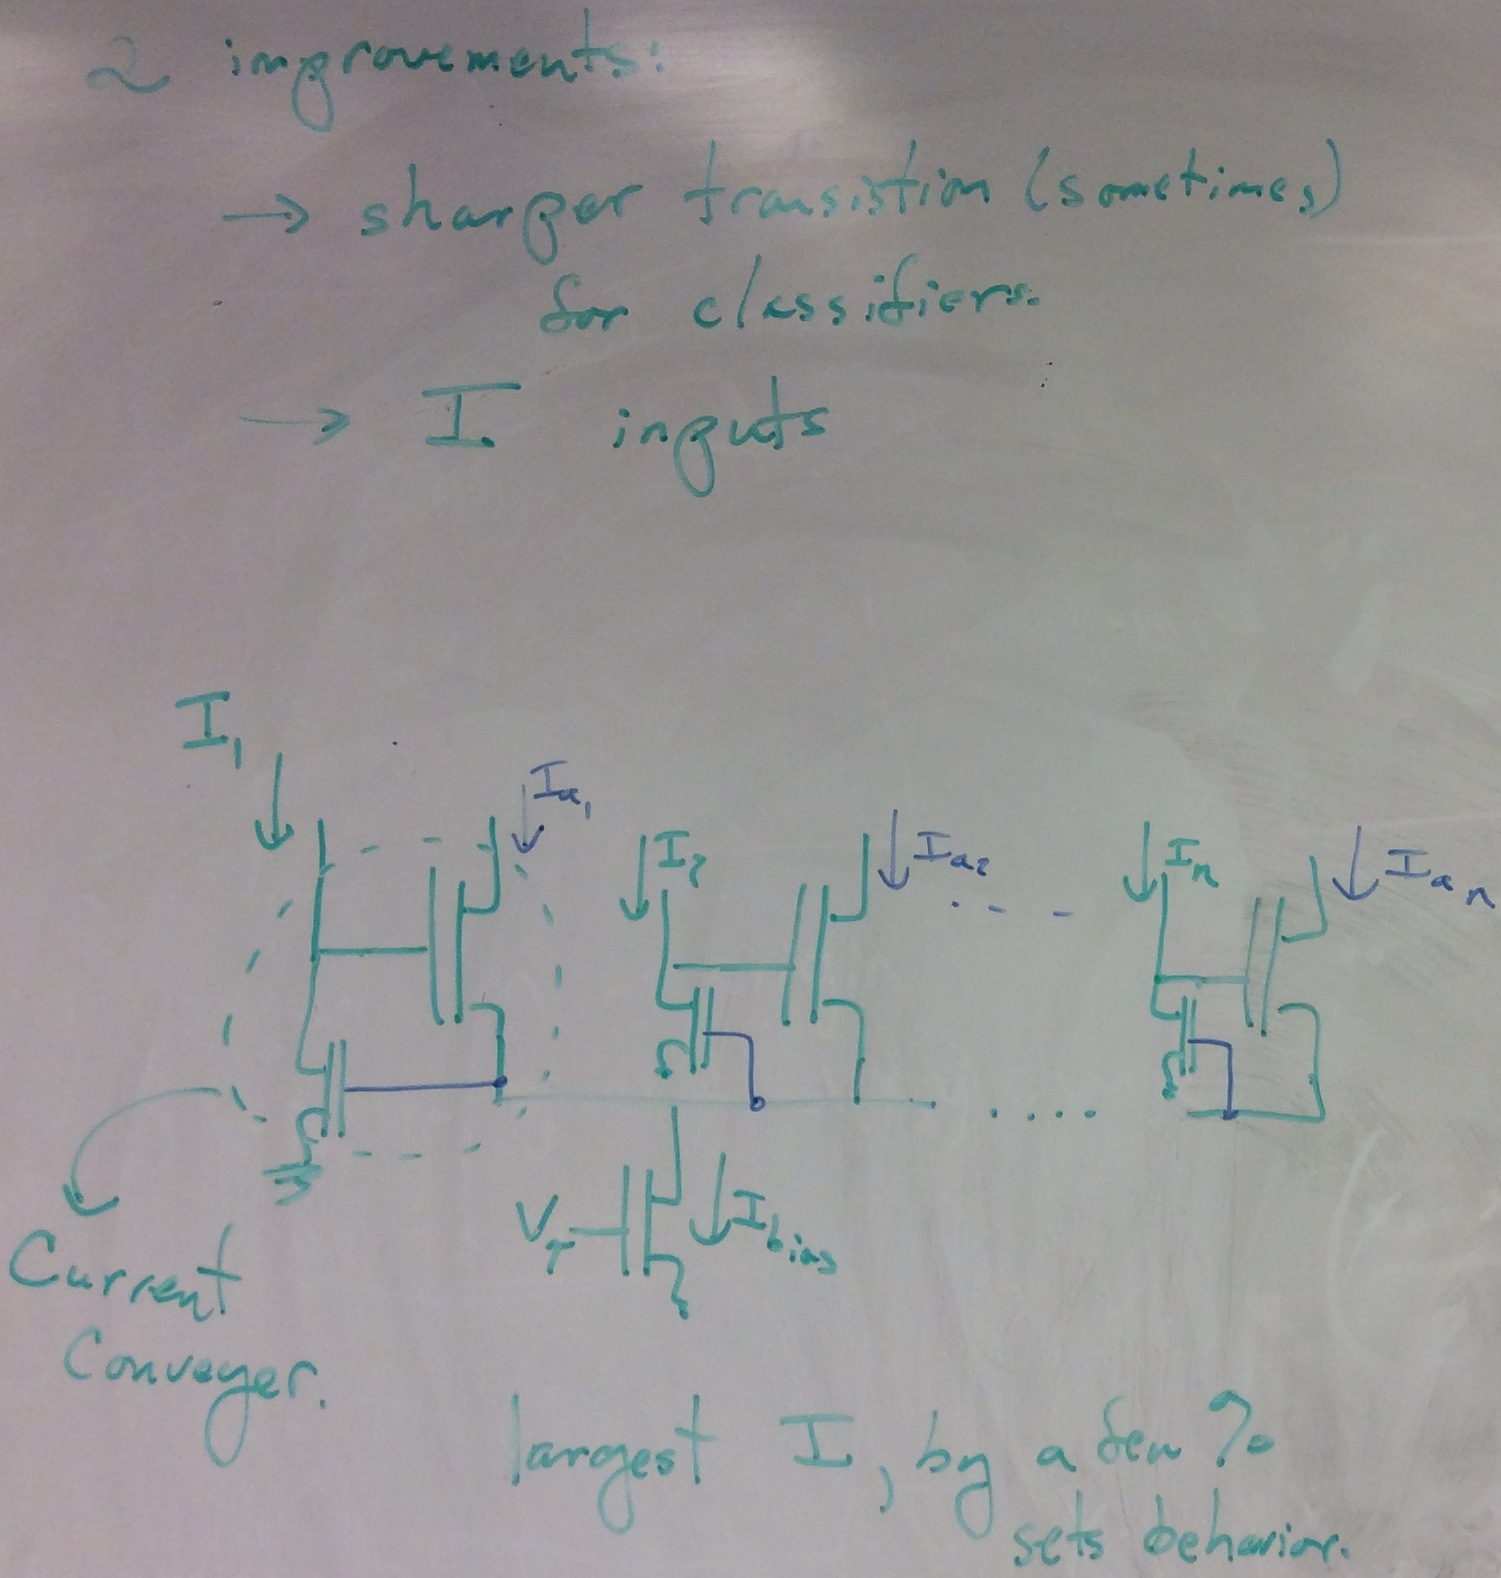 2 improvements:
→ sharper transistion (sometimes)
for classifiers.
→ I inputs
I₁
Ia₁
I₂
Ia₂
In
Ian
Vτ
Ibias
Current
Conveyer.
largest I, by a few %
sets behavior.